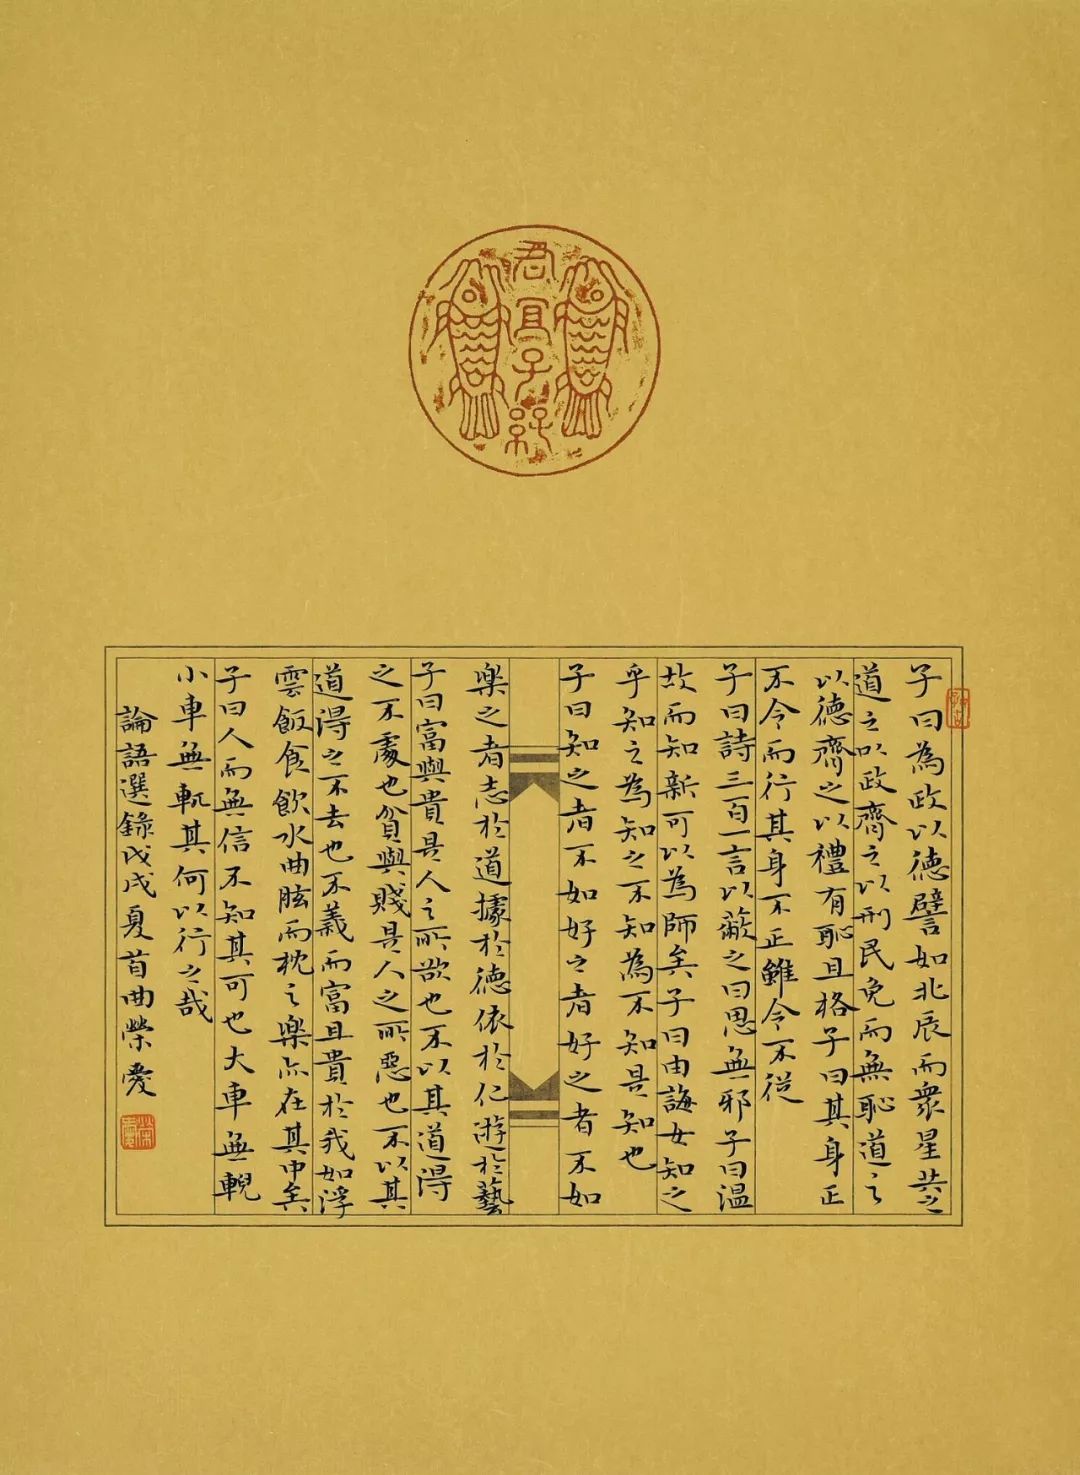 君
冝
子
孫
子曰為政以德譬如北辰而衆星共之
道之以政齊之以刑民免而無恥道之
以德齊之以禮有恥且格子曰其身正
不令而行其身不正雖令不從
子曰詩三百一言以蔽之曰思無邪子曰温
故而知新可以為師矣子曰由誨女知之
乎知之為知之不知為不知是知也
子曰知之者不如好之者好之者不如
樂之者志於道據於德依於仁游於藝
子曰富與貴是人之所欲也不以其道得
之不處也貧與賤是人之所惡也不以其
道得之不去也不義而富且貴於我如浮
雲飯食飲水曲肱而枕之樂亦在其中矣
子曰人而無信不知其可也大車無輗
小車無軏其何以行之哉
論語選錄戊戌夏首曲榮愛